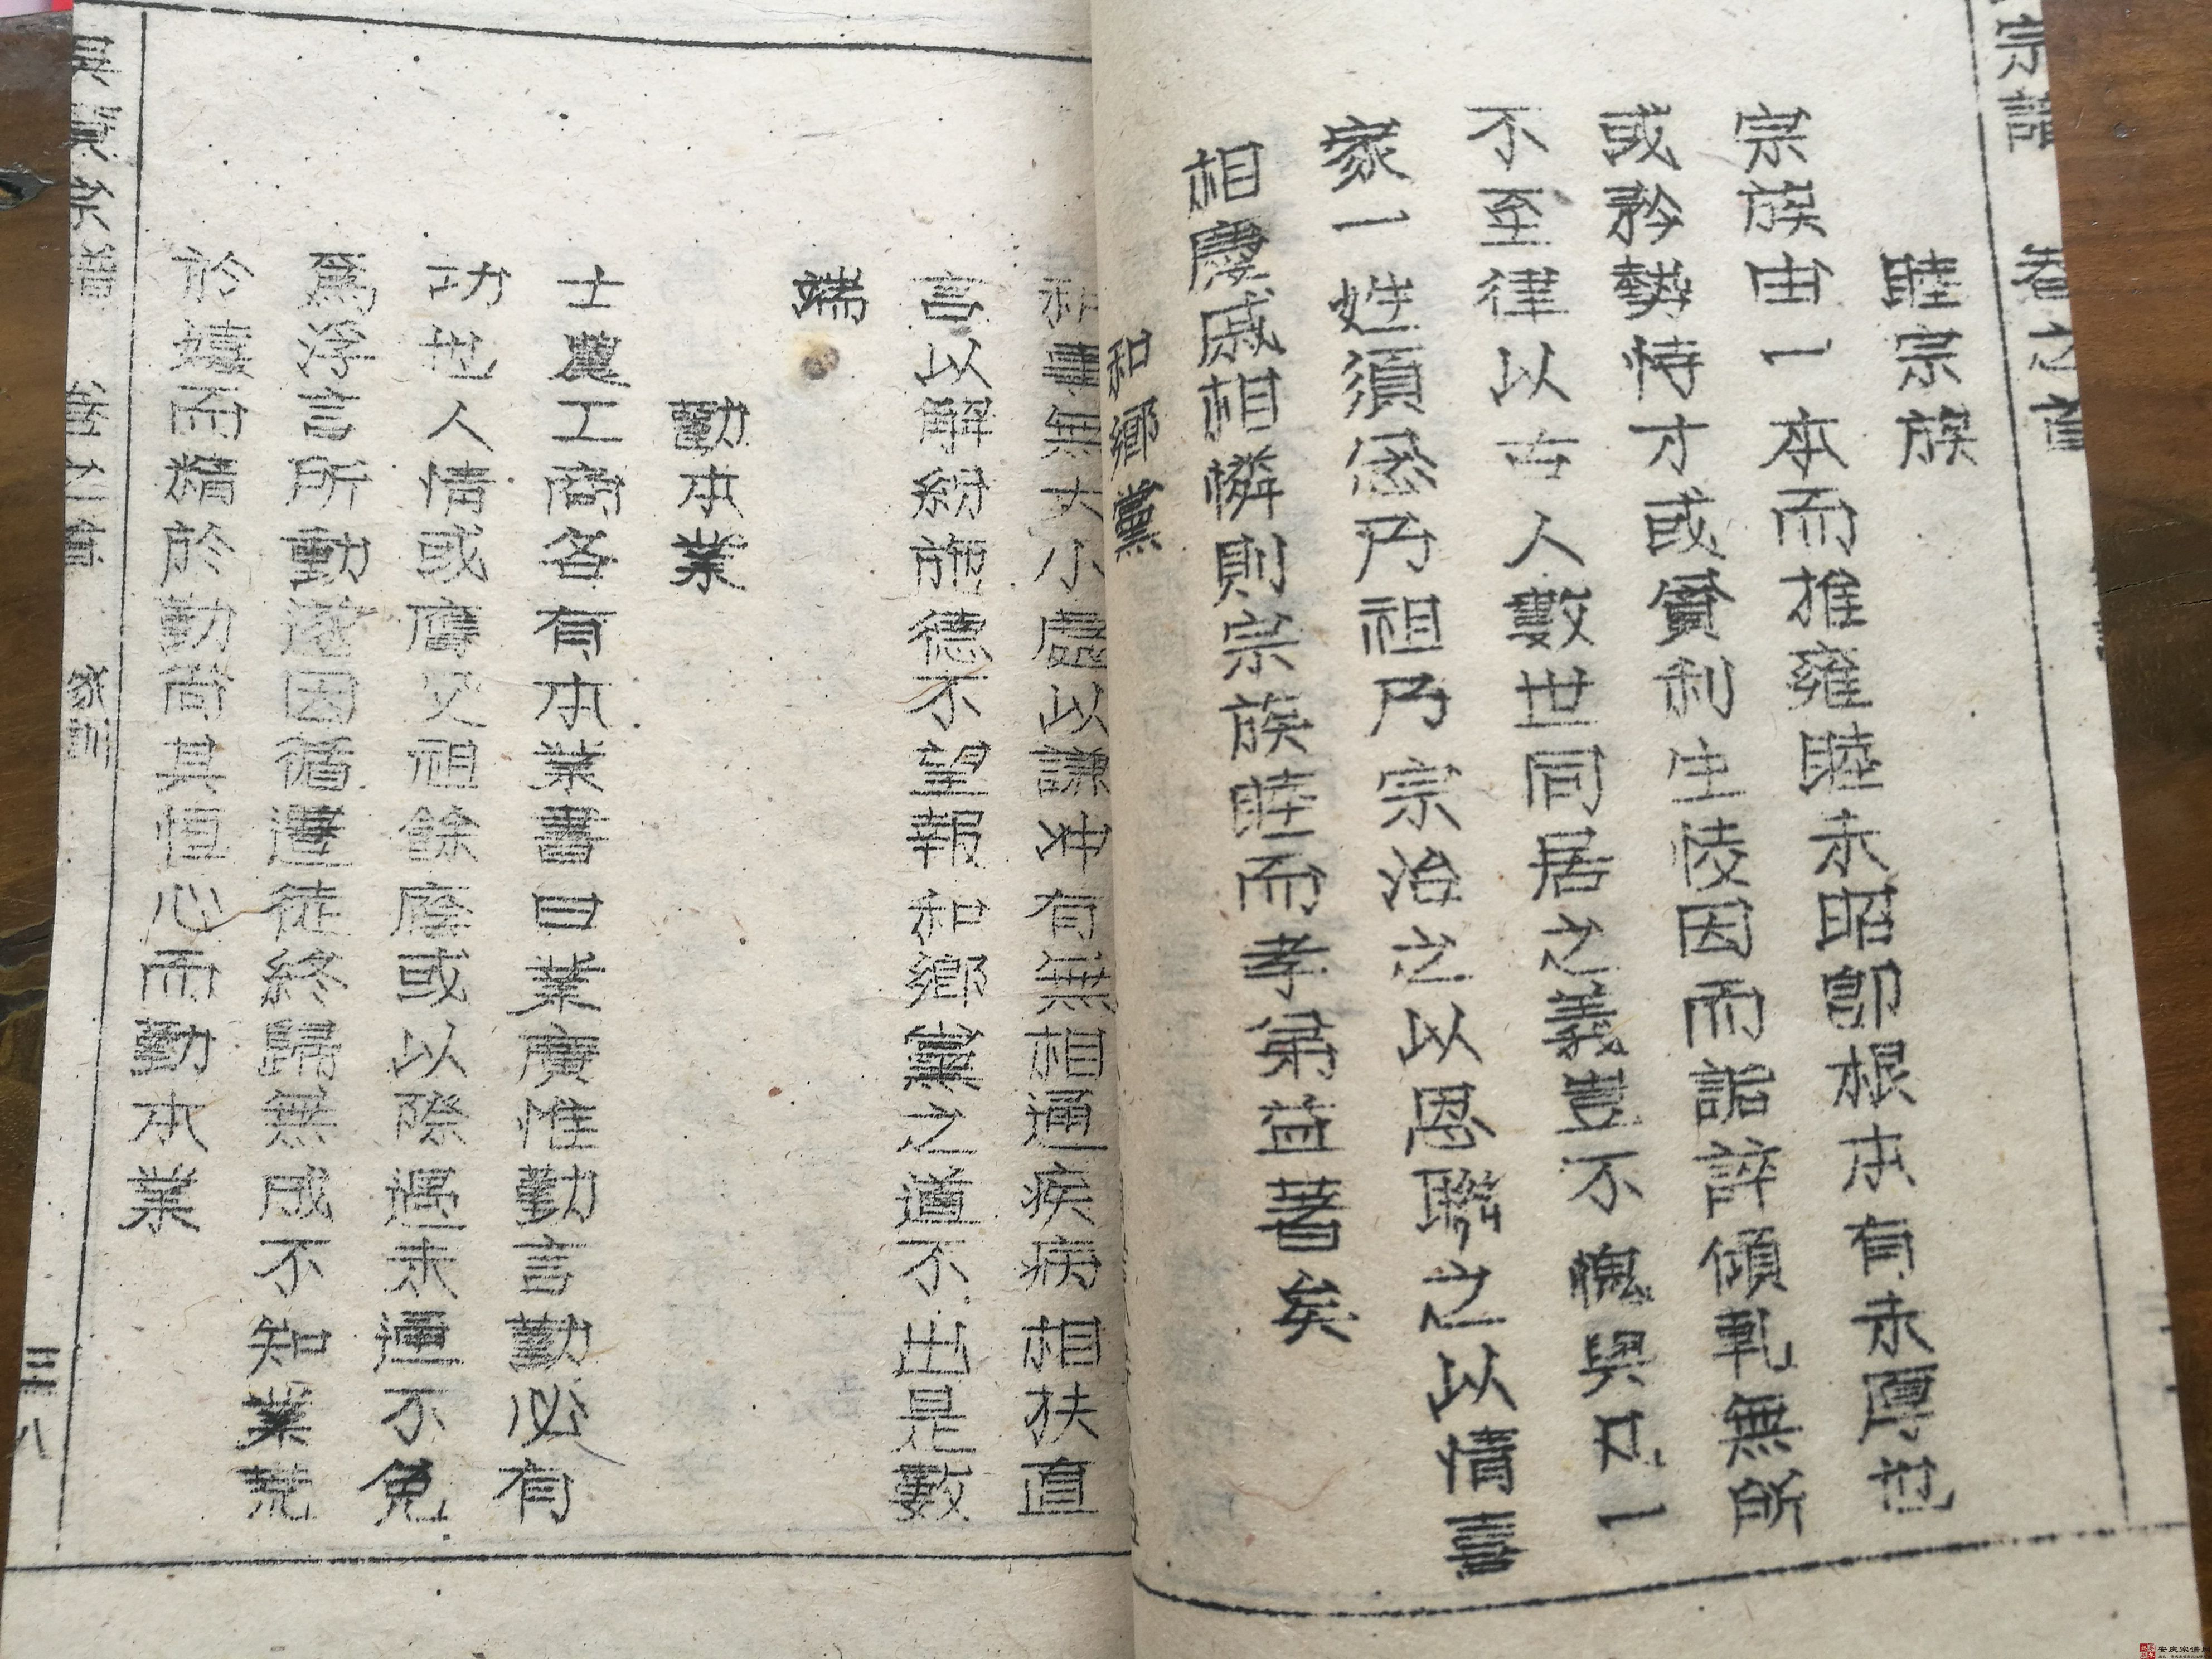 宗譜 卷之首
睦宗族
宗族由一本而推雍睦未昭卽根本有未厚也
或矜勢恃才或賓利生陵因而詬誶傾軋無所
不至律以古人數世同居之義豈不愧與凡一
家一姓須念乃祖乃宗治之以恩聯之以情喜
相慶戚相憐則宗族睦而孝弟益著矣
和鄉黨
和事無大小處以謙冲有無相通疾病相扶直
言以解紛施德不望報和鄉黨之道不出是數
端
勤本業
士農工商各有本業書曰業廣惟勤言勤必有
功也人情或膺父祖餘廕或以際遇未通不免
爲浮言所動遂因循遷徙終歸無成不知業荒
於嬉而精於勤尚其恒心而勤本業
余譜 卷之首 家訓 三八
安庆家谱网